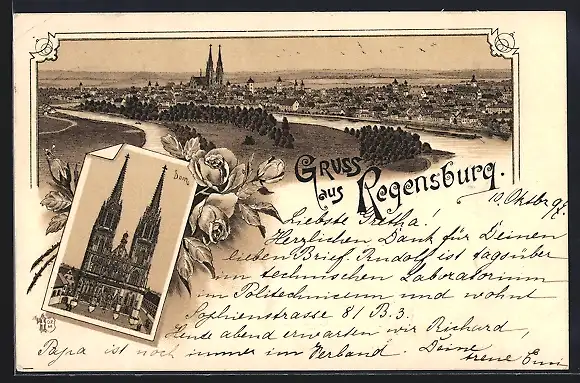 Gruss
aus Regensburg.
Dom
10. Oktbr 97.
Liebste Gretha!
Herzlichen Dank für Deinen
lieben Brief. Rudolf ist tagsüber
im technischen Laboratorium
im Politechnicum und wohnt
Sophienstrasse 81 B. 3.
Heute abend erwarten wir Richard,
Papa ist noch immer im Verband. Deine
treue